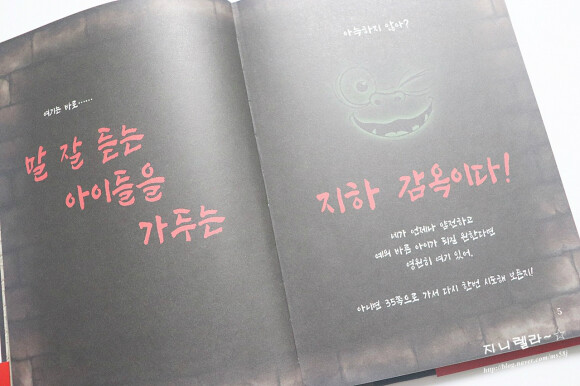 여기는 바로……
말 잘 듣는
아이들을
가두는
아늑하지 않아?
지하 감옥이다!
네가 언제나 얌전하고
예의 바른 아이가 되길 원한다면
영원히 여기 있어.
아니면 35쪽으로 가서 다시 한번 시도해 보든지!
5
지니렐라~☆